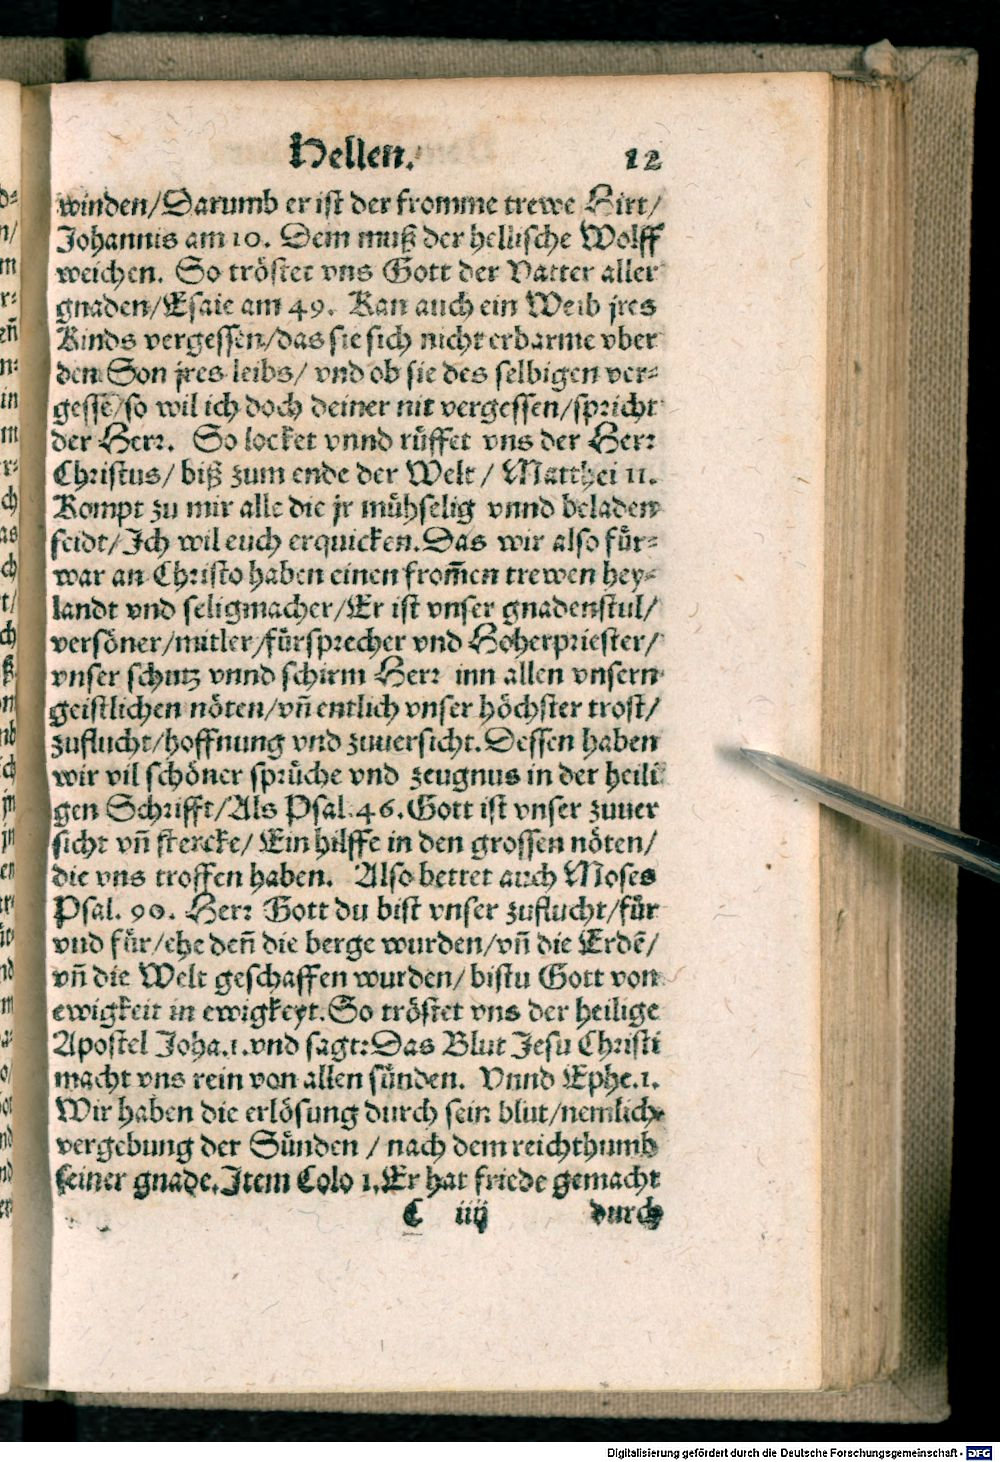 Hellen. 12
winden/Darumb er ist der fromme trewe Hirt/
Johannis am 10. Dem muß der hellische Wolff
weichen. So tröstet vns Gott der Vatter aller
gnaden/Esaie am 49. Kan auch ein Weib jres
Kinds vergessen/das sie sich nicht erbarme vber
den Son jres leibs/ vnd ob sie des selbigen ver⸗
gessē/so wil ich doch deiner nit vergessen/spricht
der Herr. So locket vnnd rüffet vns der Herr
Christus/ biß zum ende der Welt / Matthei 11.
Kompt zu mir alle die jr mühselig vnnd beladen
seidt/Ich wil euch erquicken.Das wir also für⸗
war an Christo haben einen from̃en trewen hey⸗
landt vnd seligmacher/Er ist vnser gnadenstul/
versöner/mitler/fürsprecher vnd Hoherpriester/
vnser schutz vnnd schirm Herr inn allen vnsern
geistlichen nöten/vñ entlich vnser höchster trost/
zuflucht/hoffnung vnd zuuersicht.Dessen haben
wir vil schöner sprüche vnd zeugnus in der heili
gen Schrifft/Als Psal.46.Gott ist vnser zuuer
sicht vñ stercke/ Ein hilffe in den grossen nöten/
die vns troffen haben. Also bettet auch Moses
Psal. 90. Herr Gott du bist vnser zuflucht/für
vnd für/ehe deñ die berge wurden/vñ die Erdē/
vñ die Welt geschaffen wurden/ bistu Gott von
ewigkeit in ewigkeyt.So tröstet vns der heilige
Apostel Joha.1.vnd sagt:Das Blut Jesu Christi
macht vns rein von allen sünden. Vnnd Ephe.1.
Wir haben die erlösung durch sein blut/nemlich
vergebung der Sünden / nach dem reichthumb
seiner gnade.Item Colo 1.Er hat friede gemacht
C iiij durch
Digitalisierung gefördert durch die Deutsche Forschungsgemeinschaft - DFG